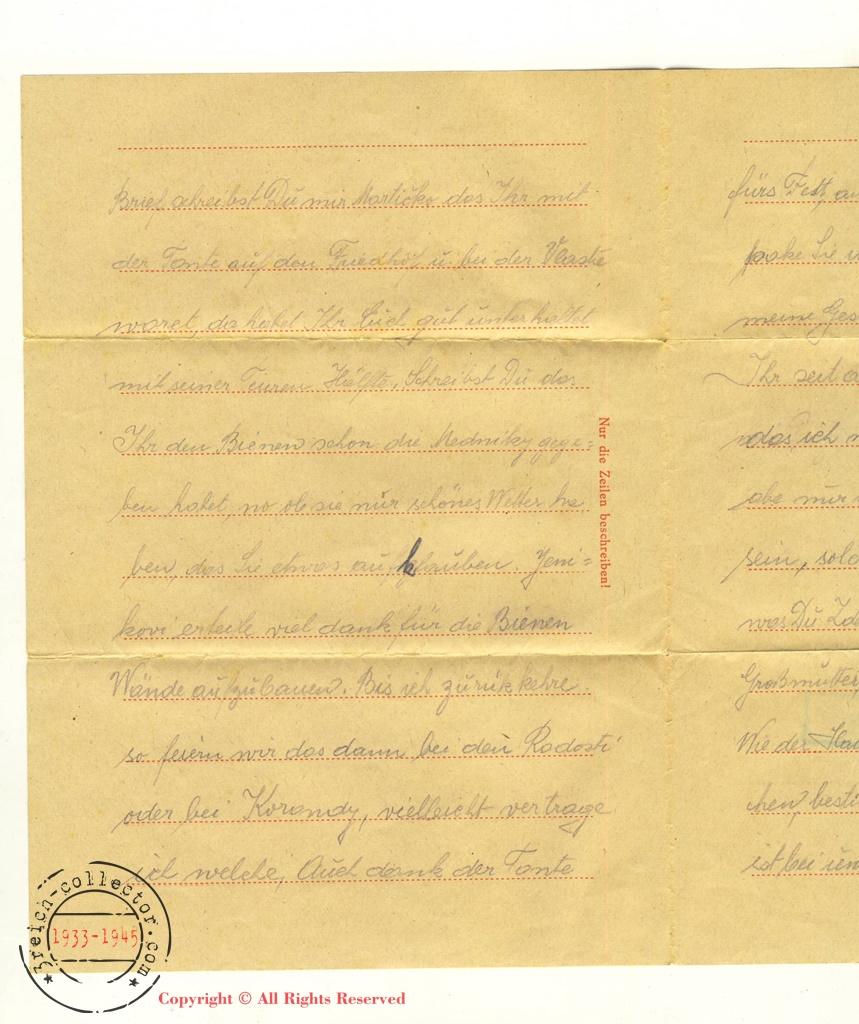 Brief schreibst Du mir Martičko das Ihr mit
der Tante auf den Friedhof u. bei der Vlasti
waret, da habet Ihr Euch gut unterhaltet
mit seiner Teuren Hälfte, Schreibst Du das
Ihr den Bienen schon die Medniky gege=
ben habet, no ob sie nur schönes Wetter ha
ben, das Sie etwas aufklauben. Jeni=
kovi erteile viel dank für die Bienen
Wände aufzubauen. Bis ich zurük kehre
so feiern wir das dann bei den Radosti
oder bei Korandy, vielleicht vertrage
ich welche, Auch dank der Tante
Nur die Zeilen beschreiben!
fürs Fest, au
meine Ges
Ihr seit a
das, ich
abe nur
sein, sola
was Du Zde
Großmutter
Wie der Hau
chen, besti
ist bei un
3reich-collector.com
1933-1945
Copyright © All Rights Reserved